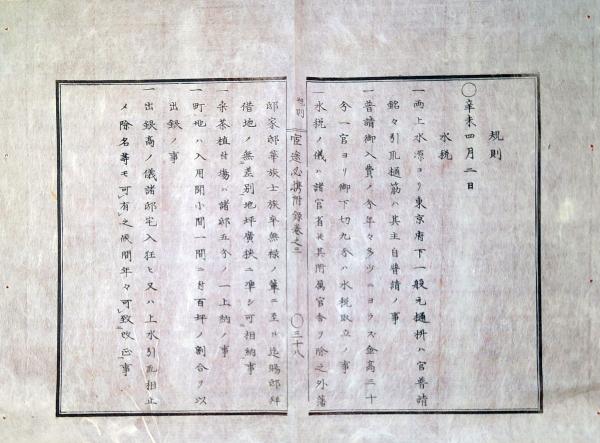 規則
〇辛未四月二日
水税
一両上水源ヨリ東京府下一般元樋桝ハ官普請
銘々引取樋筋ハ其主自普請ノ事
一普請御入費ノ今年々多少ニヨラス金高三十
今一官ヨリ御下切九分ハ水税取立ノ事
一水税ノ儀ハ諸官省并其附属官舎ヲ除之外藩
規則
官途必携附録巻之三
〇三十八
邸家邸華族士族卒無禄ノ輩ニ至ル迄賜邸拝
借地ノ無差別地坪廣狭ニ準シ可相納事
一桑茶植付場ハ諸邸五分ノ一上納ノ事
一町地ハ入用間小間一間ニ付百坪ノ割合ヲ以
出銀ノ事
一出銀高ノ儀諸邸宅入狂ヒ又ハ上水引取相止
メ除名等モ可有之候間年々可致改正事